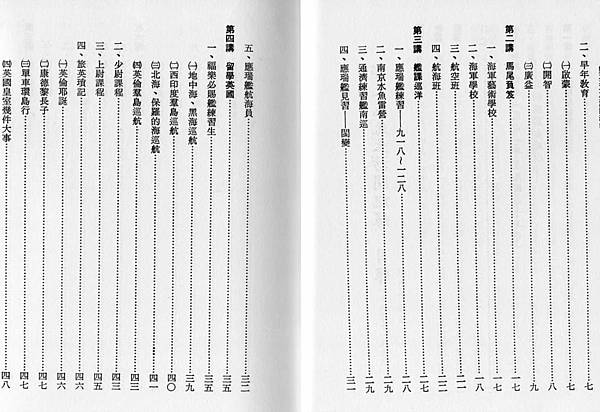 二、早年教育……七
㈠啟蒙……七
㈡開智……八
㈢廣益……九
第二講 馬尾負笈……一七
一、海軍藝術學校……一七
二、海軍學校……一八
三、航空班……二一
四、航海班……二二
第三講 艦課巡洋……二七
一、應瑞艦練習——九一八～一二八……二七
二、南京水魚雷營……二九
三、通濟練習艦南巡……二九
四、應瑞艦見習——閩變……三一
五、應瑞艦航海員……三二
第四講 留學英國……三五
一、福樂必賜艦練習生……三五
㈠地中海、黑海巡航……三九
㈡西印度羣島巡航……四〇
㈢北海、保羅的海巡航……四一
㈣英倫羣島巡航……四三
二、少尉課程……四三
三、上尉課程……四五
四、旅英瑣記……四六
㈠英倫耶誕……四六
㈡康德黎長子……四七
㈢單車環島行……四七
㈣英國皇室幾件大事……四八